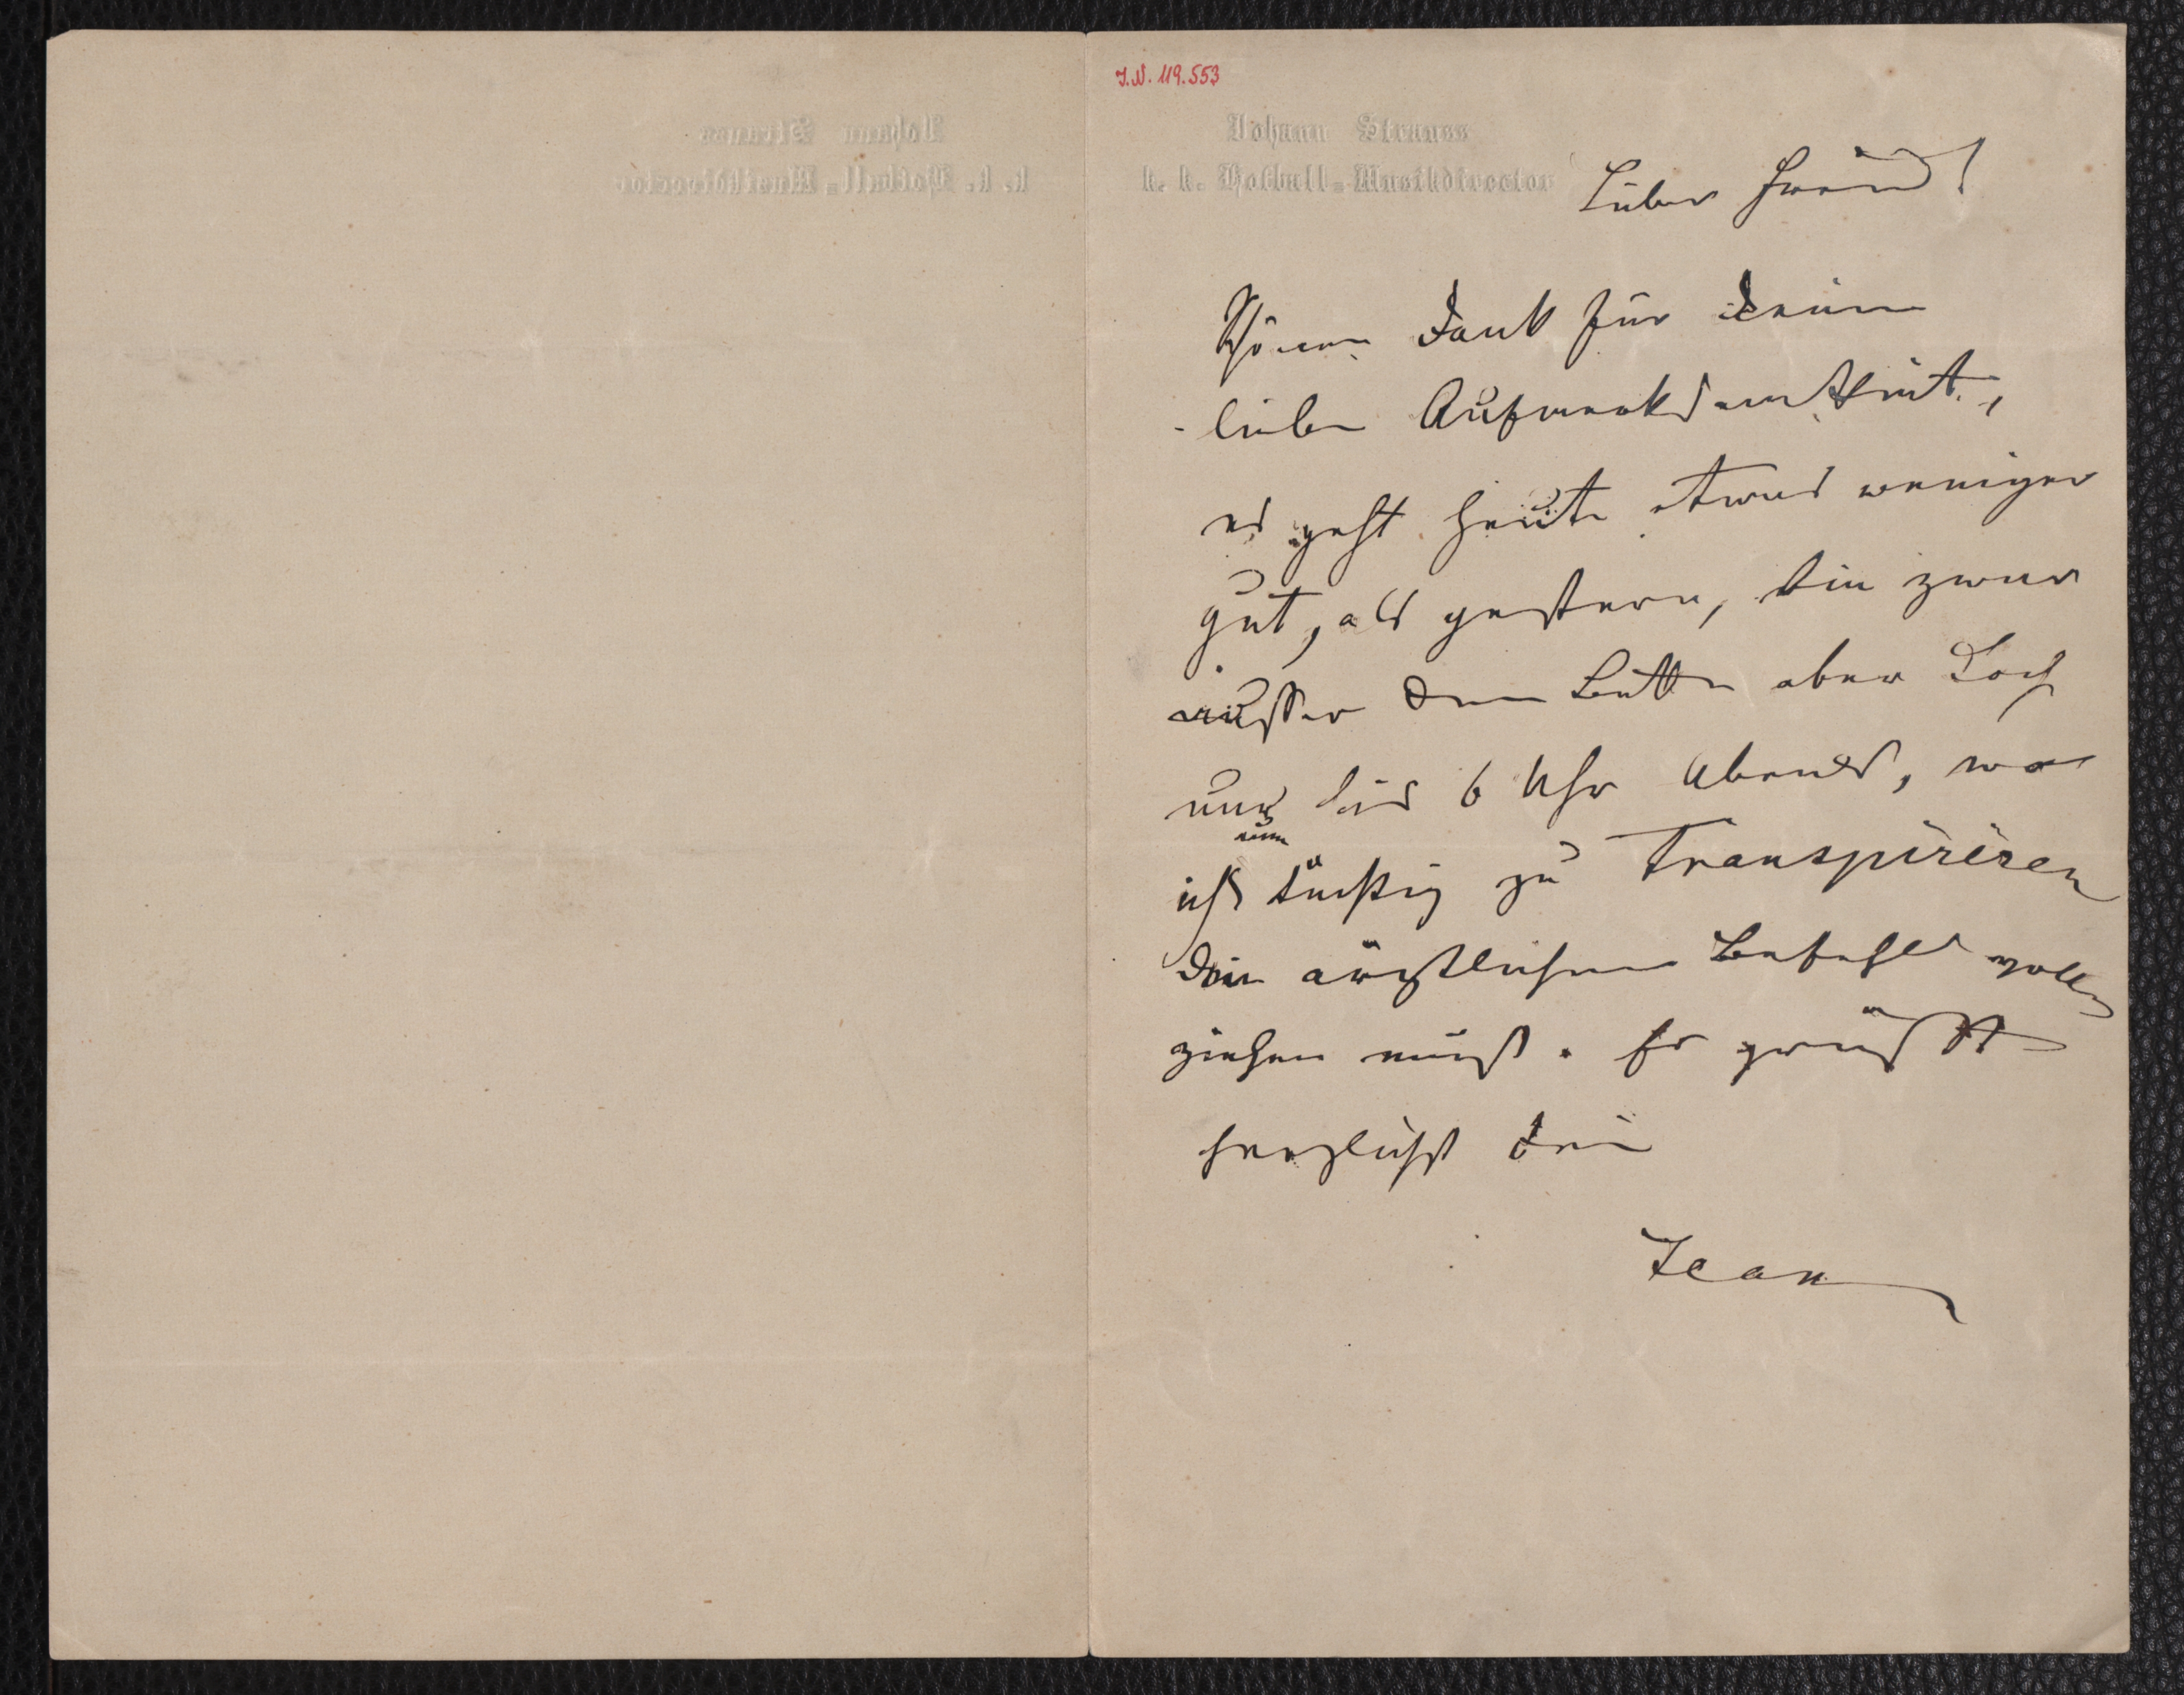 I.N. 119.553
Johann Strauss
k. k. Hofball-Musikdirector
Lieber Freund!
Schönen Dank für Deine
liebe Aufmerksamkeit,
es geht heute etwas weniger
gut, als gestern, bin zwar
ausser dem Bette aber doch
nur bis 6 Uhr Abends, wo
ich nun tüchtig zu Transpiriren
die ärztlichen Befehle voll
ziehen muß. Es grüßt
herzlichst Dein
Jean